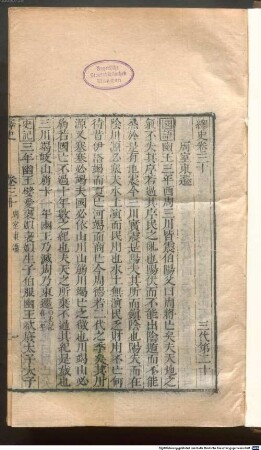 繹史卷三十 三代第二十
周室東遷
國語幽王三年西周三川皆震伯陽父曰周將亡矣夫天地之
氣不失其序若過其序民之亂也陽伏而不能出陰遁而不能
烝於是有地震今三川實震是陽失其所而鎮陰也陽失而在
陰川源必塞夫水土演而民用也水土無演民乏財用不亡何
待昔伊洛竭而夏亡河竭而商亡今周德若二代之季矣其川
源又塞塞必竭夫國必依山川山崩川竭亡之徵也川竭山必
崩若國亡不過十年數之紀也夫天之所棄不過其紀是歲也
三川竭岐山崩十一年幽王乃滅周乃東遷
史記三年幽王嬖愛褒姒褒姒生子伯服幽王欲廢太子太子
繹史 卷三十 周室東遷 一